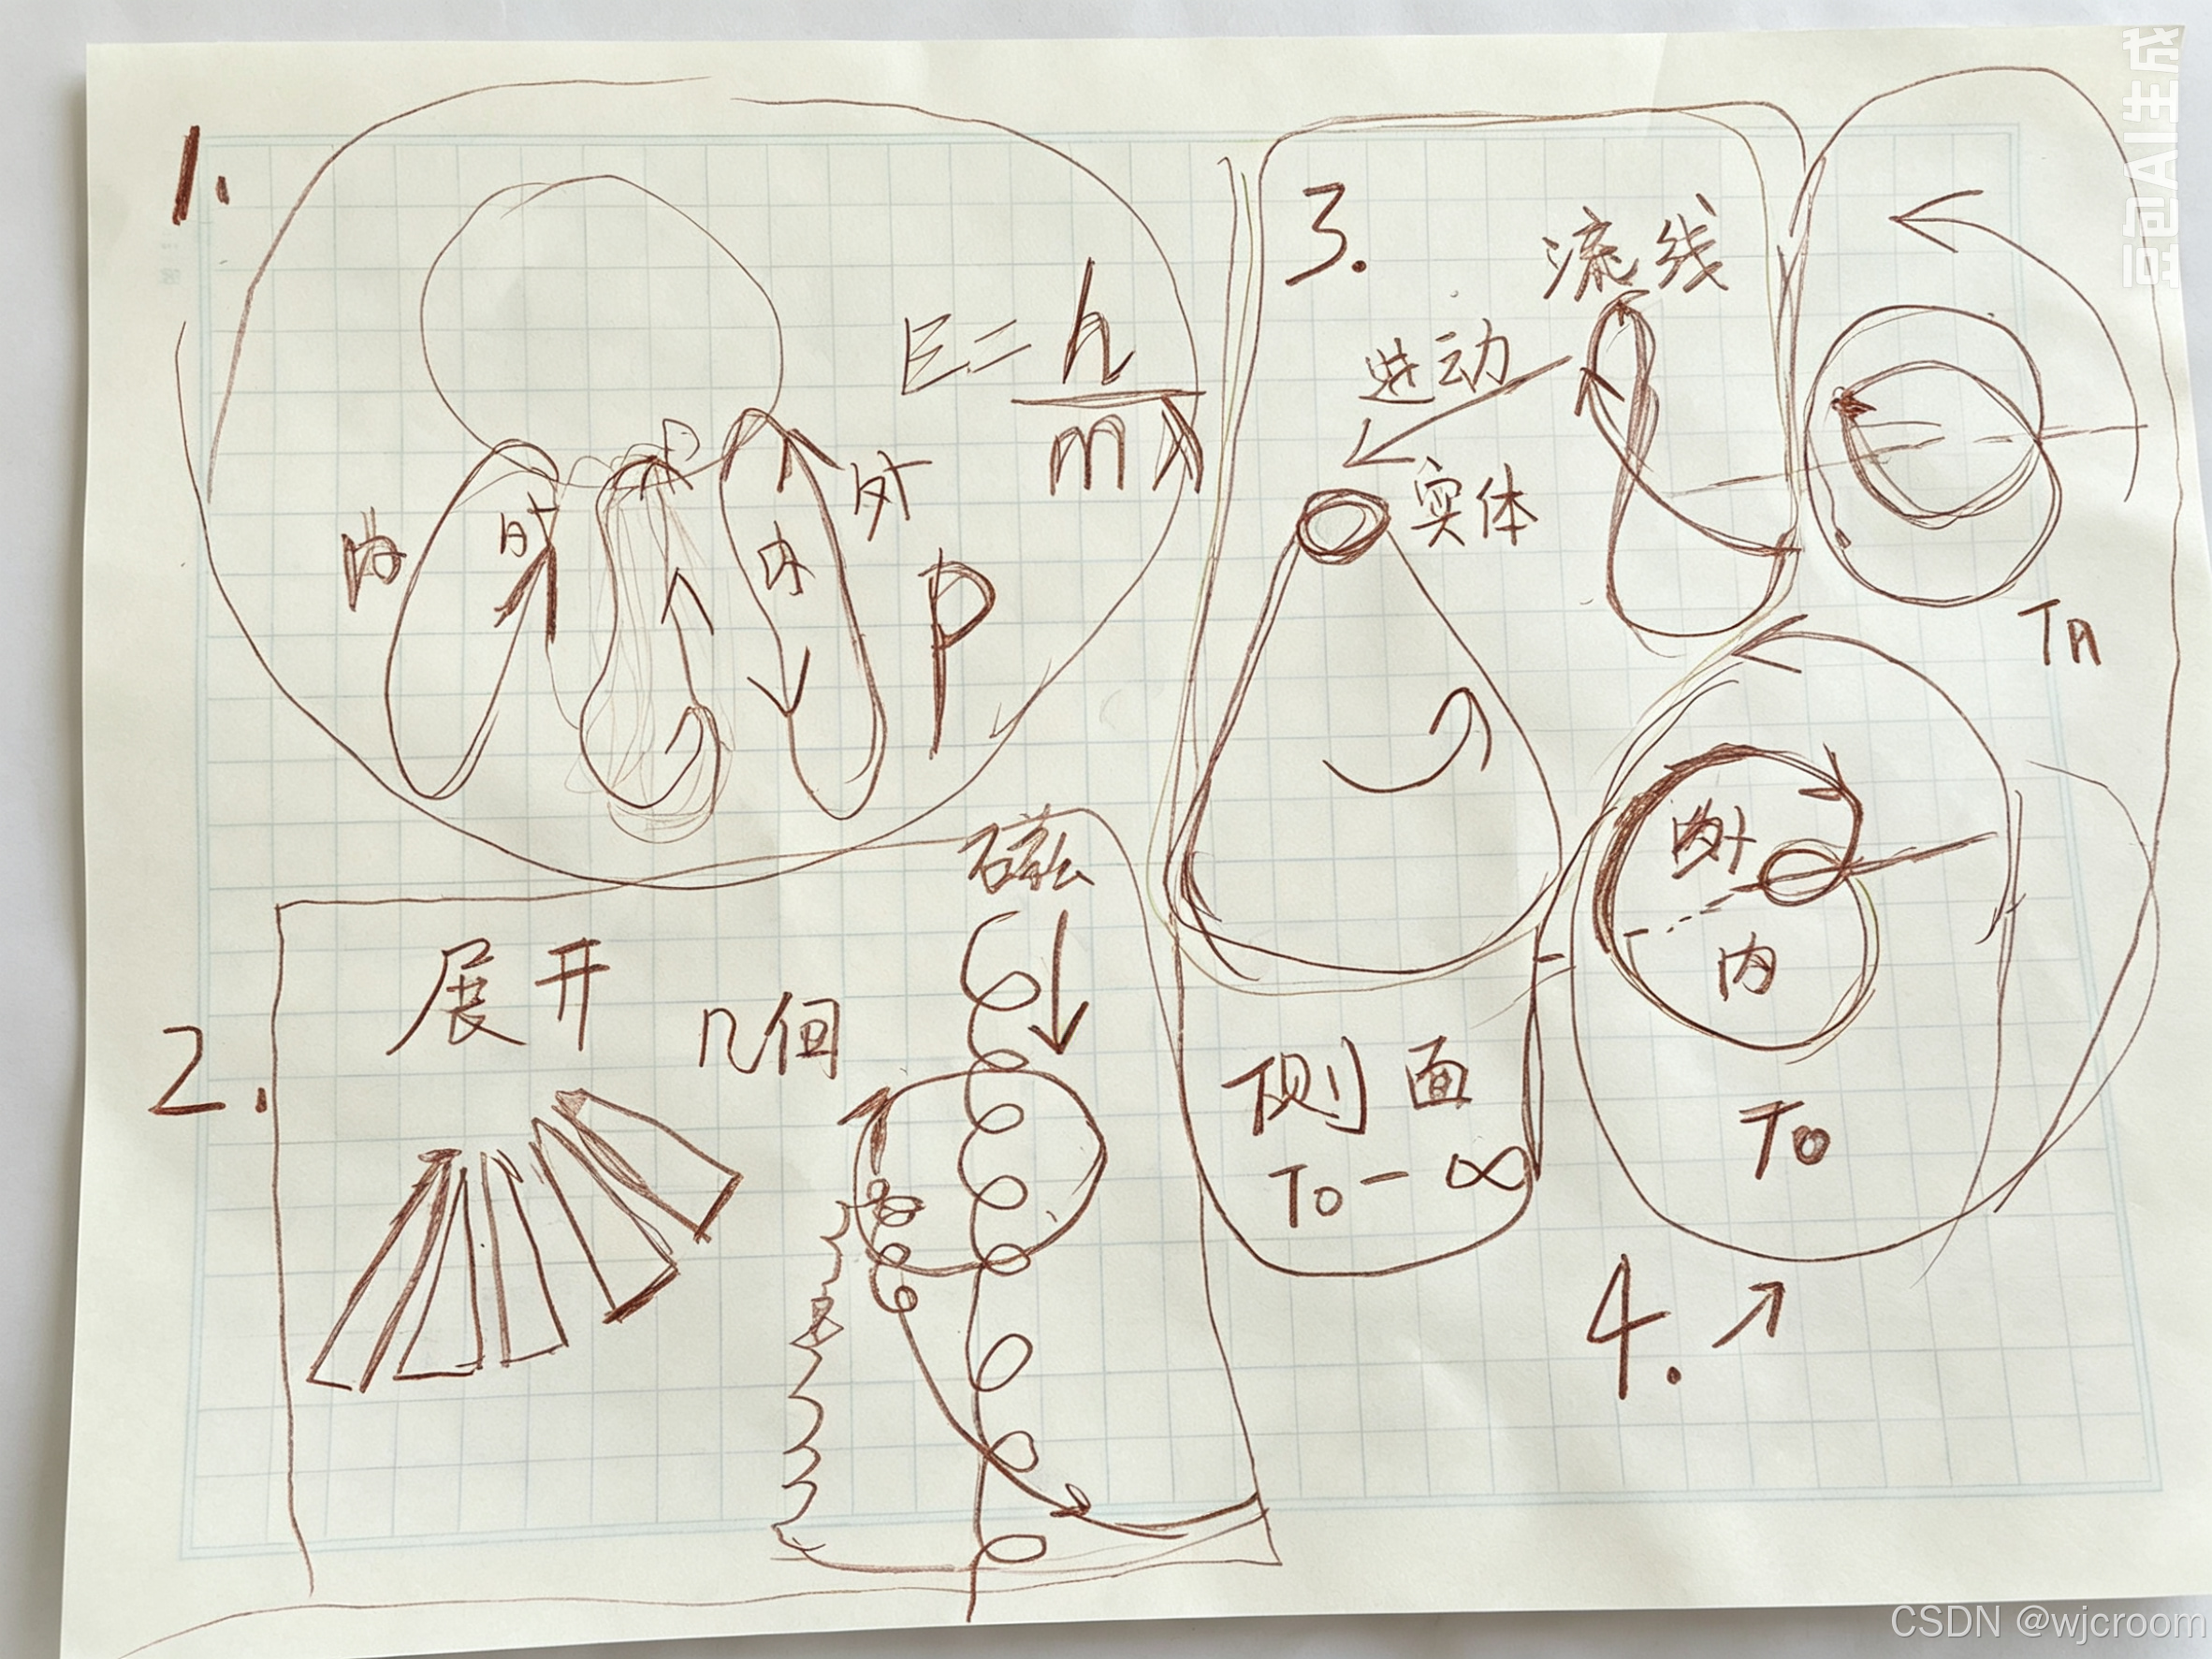 1.
E = h
mλ
P
内
外
内
外
P
2.
展开
几何
磁
3.
流线
进动
实体
侧面
T0-∞
Tn
外
内
T0
4.
豆包AI生成
CSDN @wjcroom